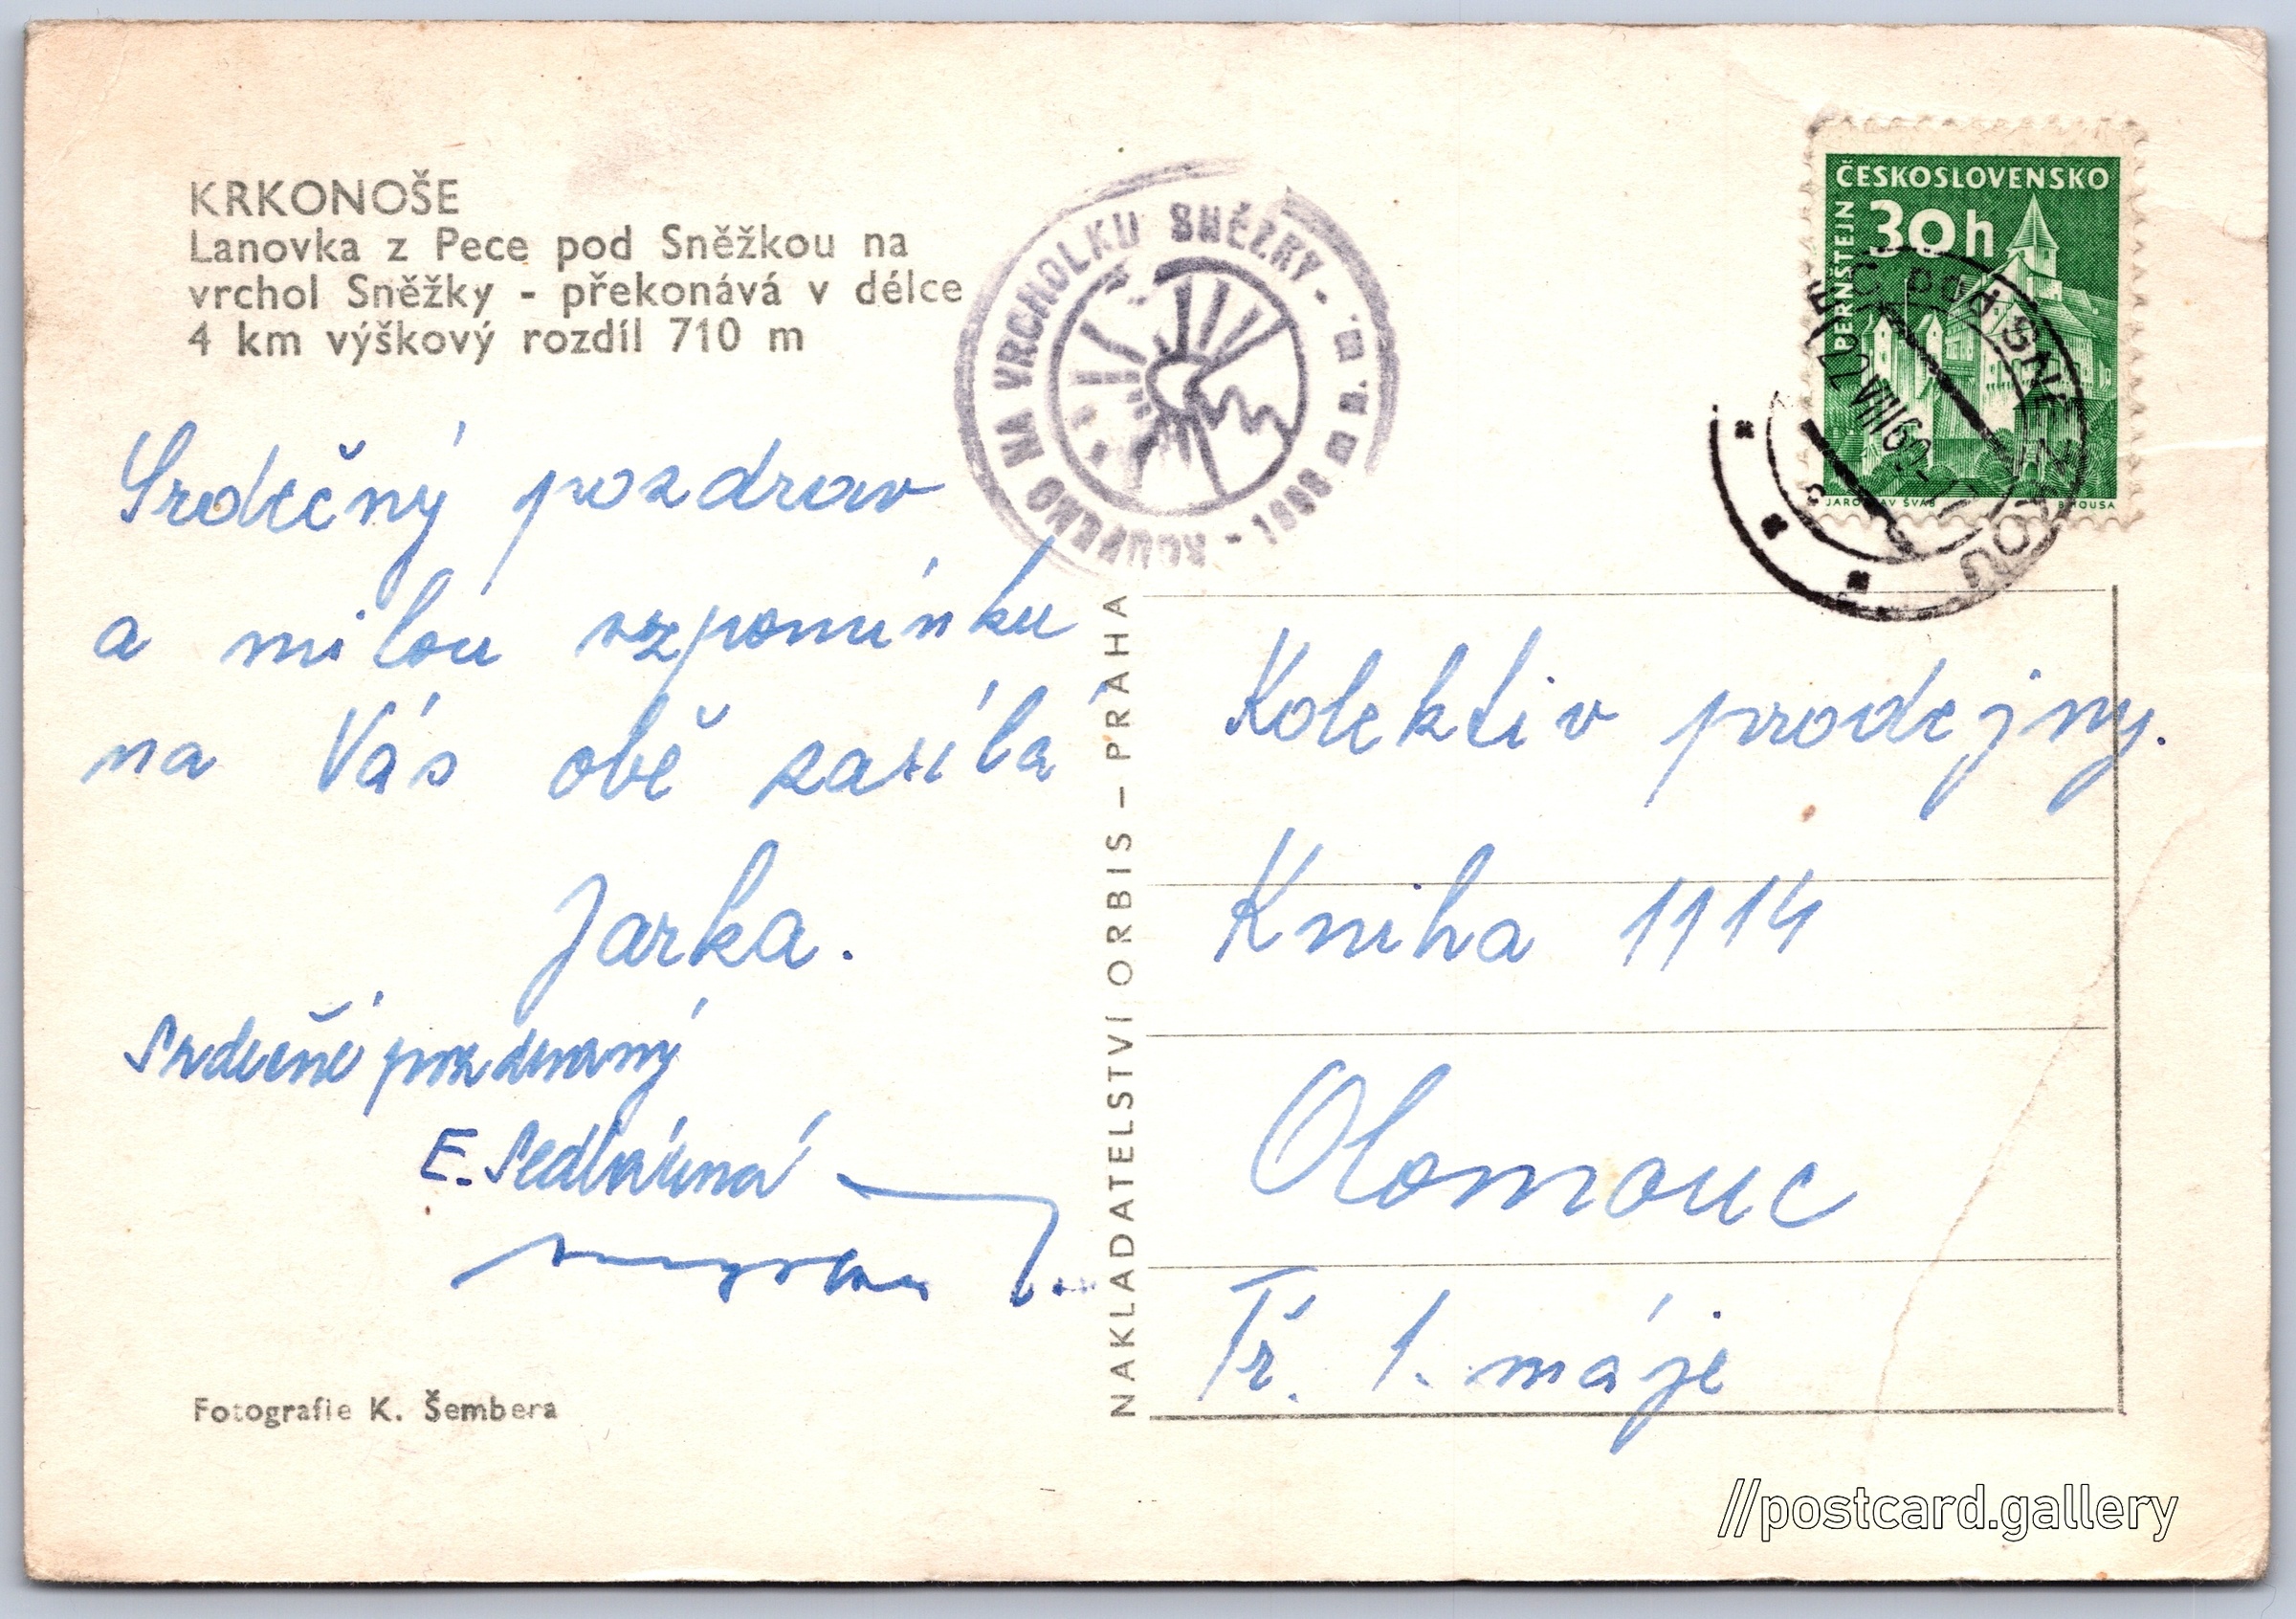 KRKONOŠE
Lanovka z Pece pod Sněžkou na
vrchol Sněžky - překonává v délce
4 km výškový rozdíl 710 m
KOUPENO NA VRCHOLKU SNĚŽKY -
ČESKOSLOVENSKO
30h
PERNŠTEJN
JAROSLAV ŠVÁB
pod SNĚŽKOU
22.VIII 62-17
Srdečný pozdrav
a milou vzpomínku
na Vás obě zasílá
Jarka.
Srdečné pozdravy
E.
NAKLADATELSTVÍ ORBIS – PRAHA
Kolektiv prodejny.
Kniha 1114
Olomouc
Tř. 1. máje
Fotografie K. Šembera
//postcard.gallery